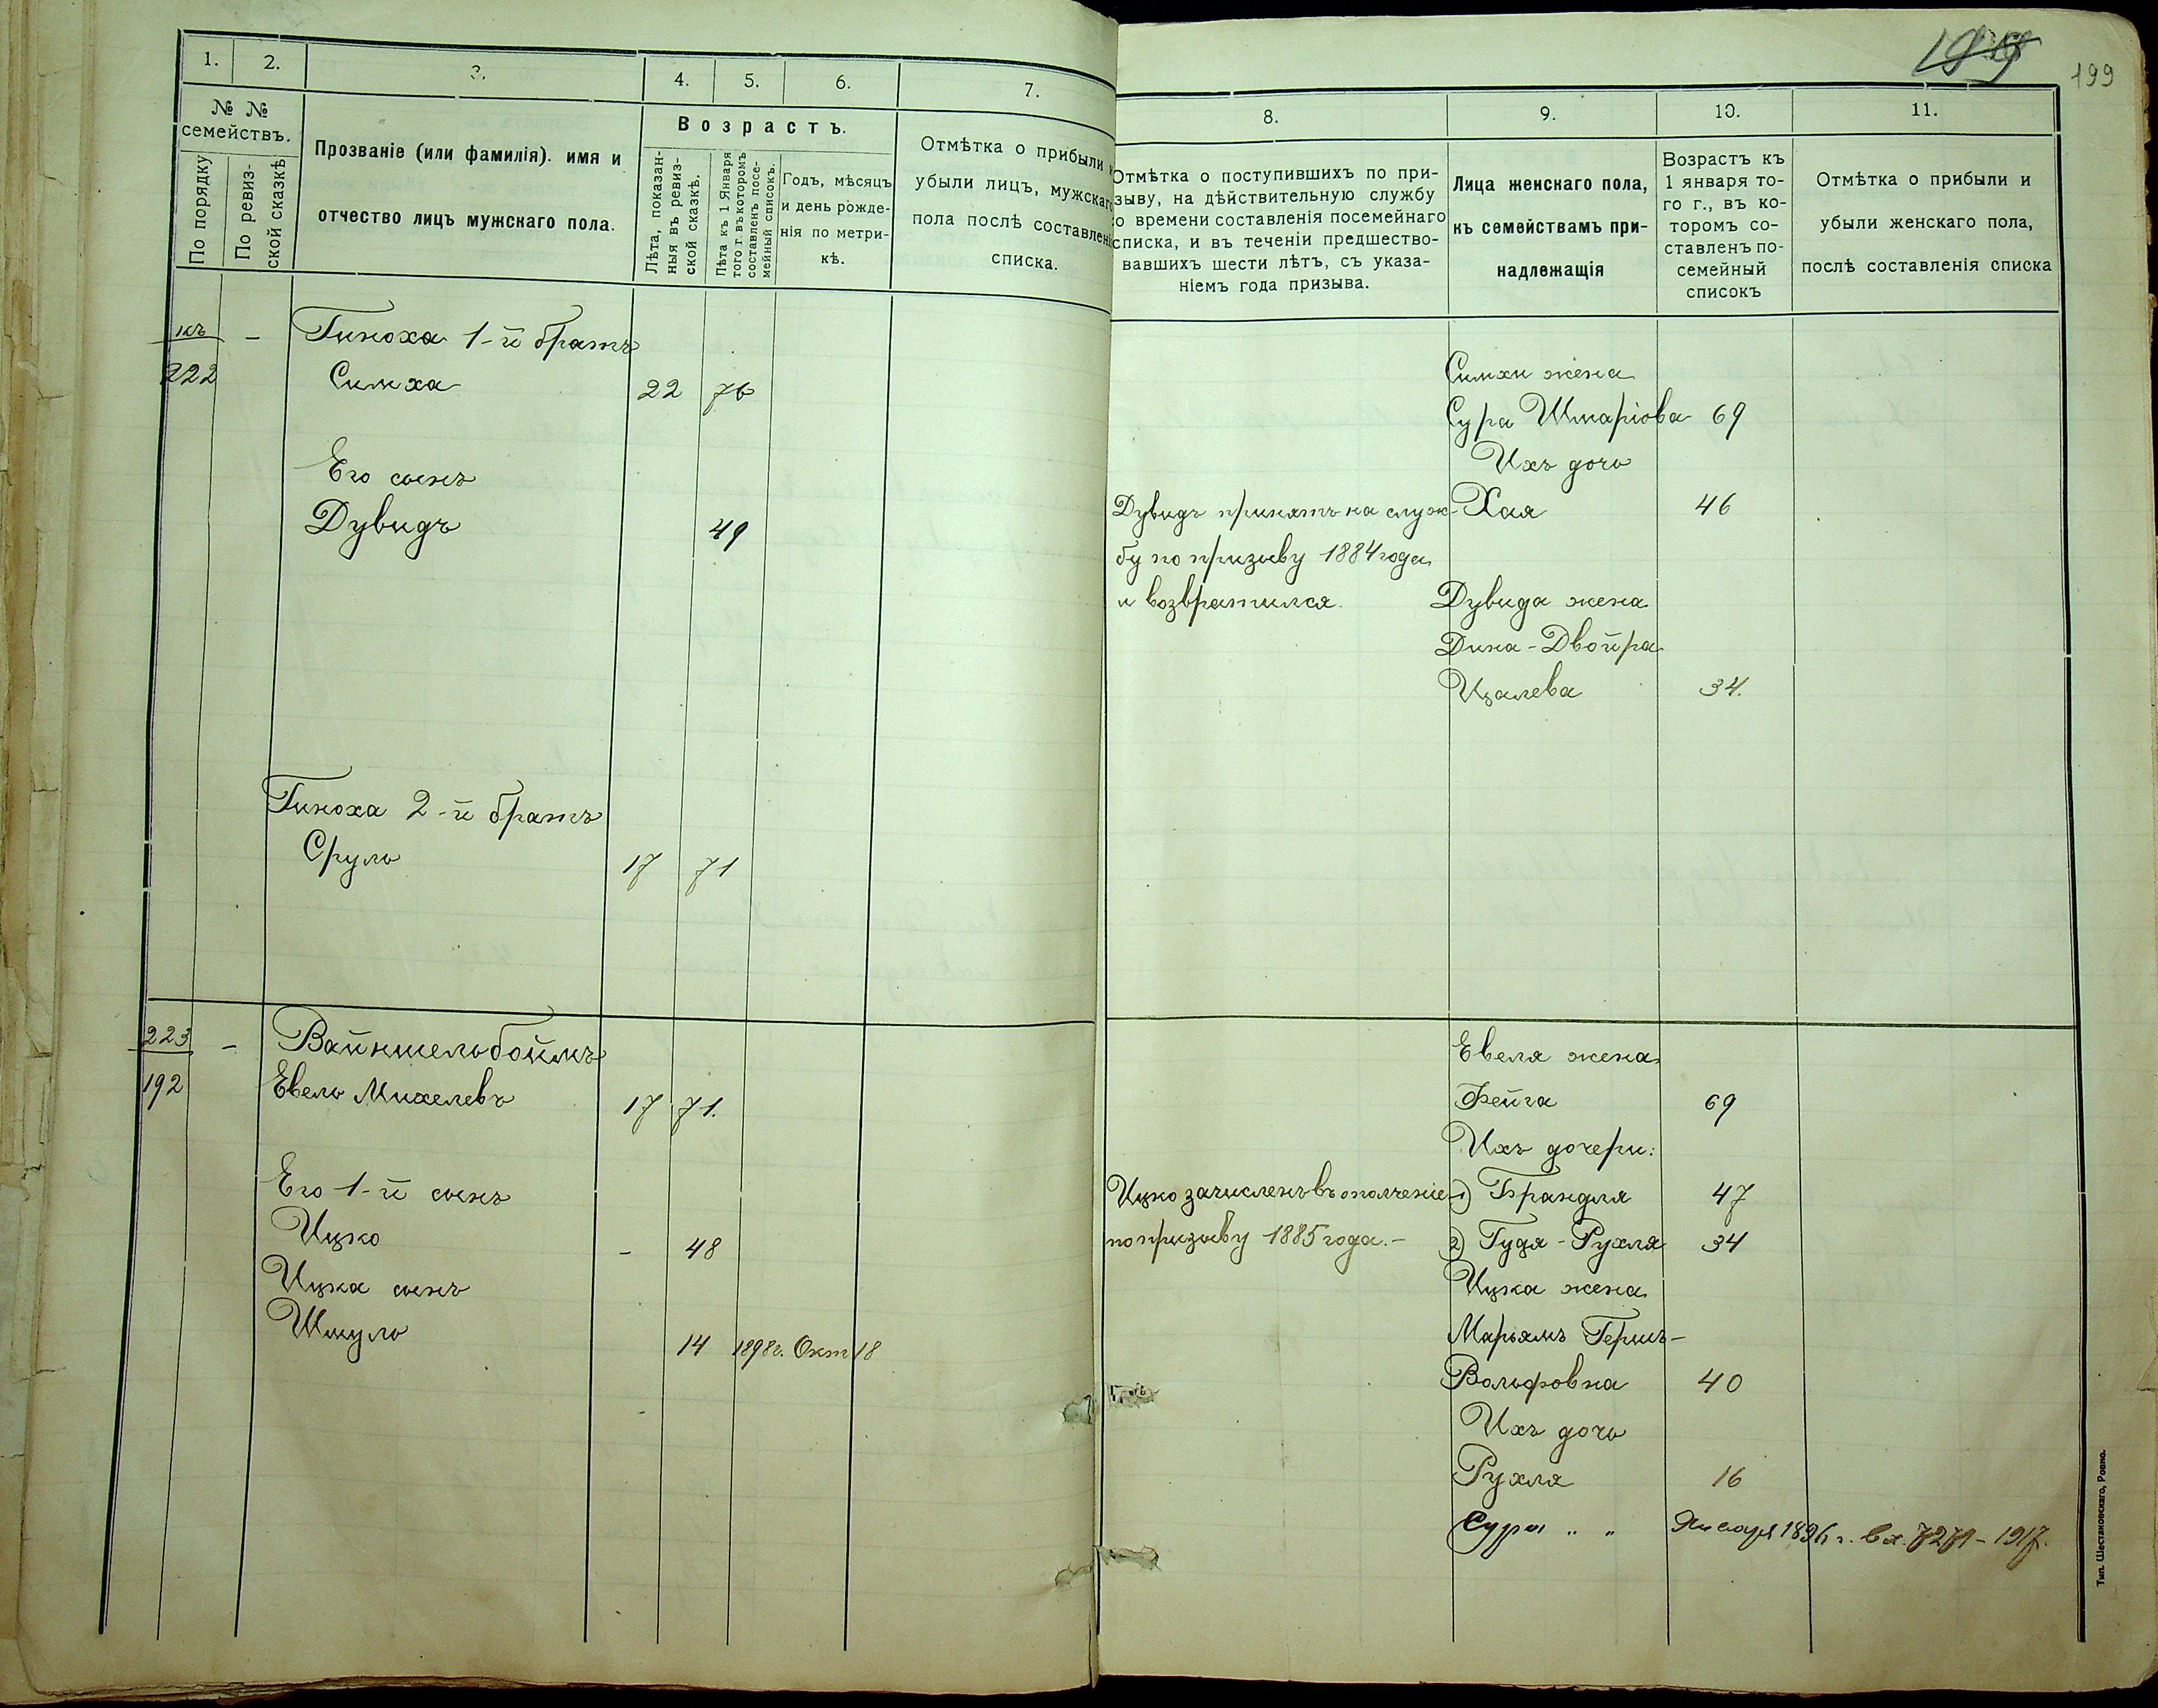 1.
2.
3.
4.
5.
6.
7.
№ №
семействъ.
По порядку
По ревиз-
ской сказкѣ
Прозваніе (или фамилія). имя и
отчество лицъ мужскаго пола.
Возрастъ.
Лѣта, показан-
ныя въ ревиз-
ской сказкѣ.
Лѣта къ 1 Января
того г. въ которомъ
составленъ посе-
мейный списокъ.
Годъ, мѣсяцъ
и день рожде-
нія по метри-
кѣ.
Отмѣтка о прибыли и
убыли лицъ, мужскаго
пола послѣ составленія
списка.
къ
222
-
Гиноха 1-й братъ
Симха 22 76
Его сынъ
Дувидъ 49
Гиноха 2-й братъ
Сруль 17 71
223
192
-
Вайншельбоймъ
Евель Михелевъ 17 71.
Его 1-й сынъ
Ицко - 48
Ицка сынъ
Шмуль 14 1898г. Окт 18
199
8.
9.
10.
11.
Отмѣтка о поступившихъ по при-
зыву, на дѣйствительную службу
о времени составленія посемейнаго
списка, и въ теченіи предшество-
вавшихъ шести лѣтъ, съ указа-
ніемъ года призыва.
Лица женскаго пола,
къ семействамъ при-
надлежащія
Возрастъ къ
1 января то-
го г., въ ко-
торомъ со-
ставленъ по-
семейный
списокъ
Отмѣтка о прибыли и
убыли женскаго пола,
послѣ составленія списка
Симхи жена
Сура Шмаріова 69
Ихъ дочь
Хая 46
Дувидъ принятъ на служ-
бу по призыву 1884 года
и возвратился.
Дувида жена
Дина-Двойра
Ицалева 34.
Евеля жена
Фейга 69
Ихъ дочери:
1) Брандля 47
2) Гудя-Рухля 34
Ицко зачисленъ въ ополченіе
по призыву 1885 года.-
Ицка жена
Марьямъ Гершъ-
Вольфовна 40
Ихъ дочь
Рухля 16
Сура " " Января 1896 г. вх. 7271-1917.
Тип. Шестаковскаго, Ровно.